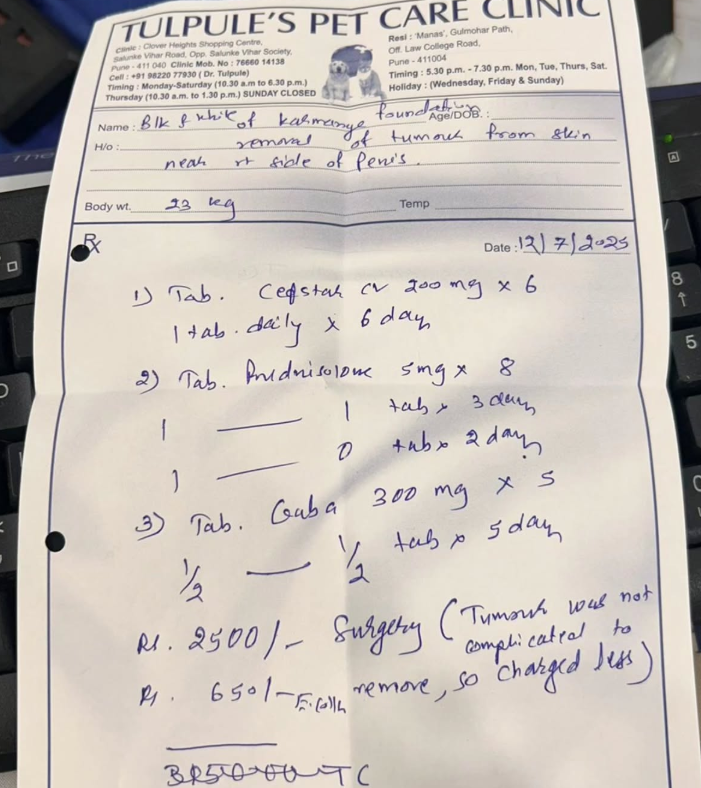 TULPULE'S PET CARE CLINIC
Clinic : Clover Heights Shopping Centre,
Salunke Vihar Road, Opp. Salunke Vihar Society,
Pune - 411 040 Clinic Mob. No : 76660 14138
Cell : +91 98220 77930 ( Dr. Tulpule)
Timing : Monday-Saturday (10.30 a.m to 6.30 p.m.)
Thursday (10.30 a.m. to 1.30 p.m.) SUNDAY CLOSED
Resi : 'Manas', Gulmohar Path,
Off. Law College Road,
Pune - 411004
Timing : 5.30 p.m. - 7.30 p.m. Mon, Tue, Thurs, Sat.
Holiday : (Wednesday, Friday & Sunday)
Name : Blk & white of karmange foundation Age/DOB. :
H/o : removal of tumour from skin
near rt side of Penis.
Body wt. 23 kg Temp
Rx
Date : 12/7/2025
1) Tab. Cefstar CV 200 mg x 6
1 tab. daily x 6 day
2) Tab. Prednisolone 5mg x 8
1 — 1 tab x 3 day
1 — 0 tab x 2 day
3) Tab. Gaba 300 mg x 5
1/2 — 1/2 tab x 5 day
Rs. 2500/- Surgery (Tumour was not
complicated to
Rs. 650/- remove, so charged less)